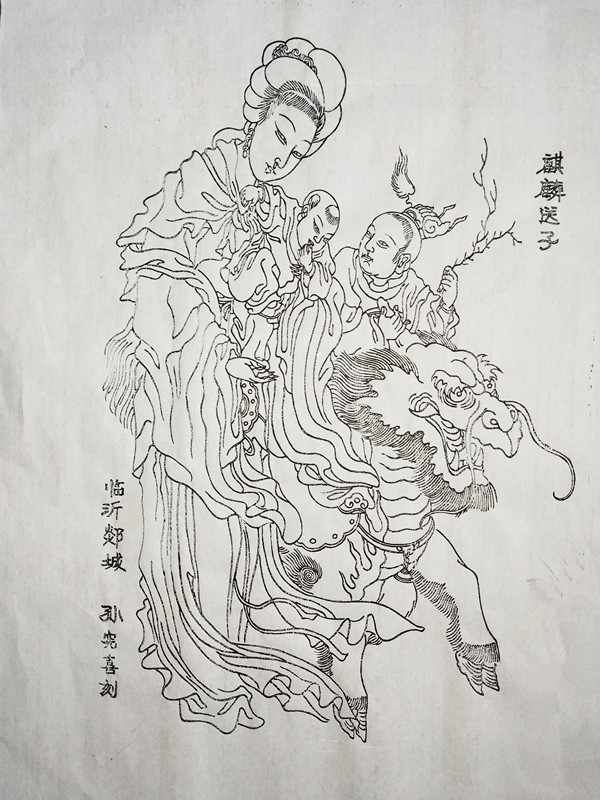 麒麟送子
临沂郯城 孙 喜刻